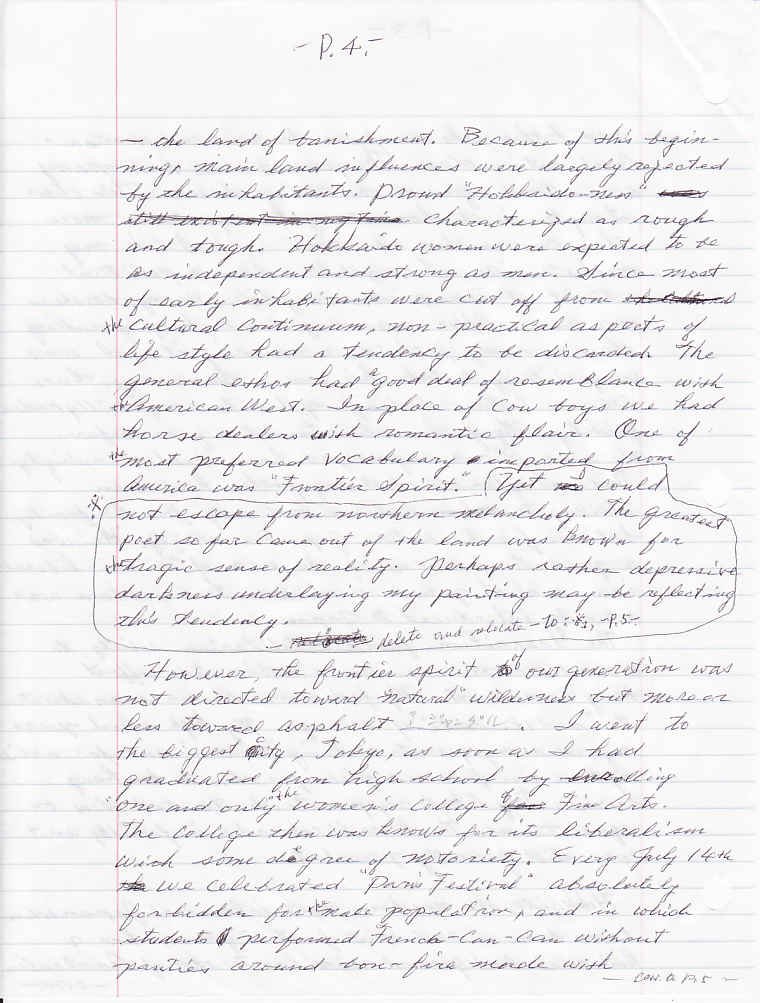 - P. 4. -
— the land of banishment. Because of this begin-
ning, main land influences were largely rejected
by the inhabitants. Proud "Hokkaido-ness" was
still existent in my time characterized as rough
and tough. Hokkaido women were expected to be
as independent and strong as men. Since most
of early inhabitants were cut off from the cultural
the cultural continuum, non-practical aspects of
life style had a tendency to be discarded. The
general ethos had a good deal of resemblance with
the American West. In place of Cow boys we had
horse dealers with romantic flair. One of
the most preferred vocabulary imported from
America was "Frontier Spirit." Yet I could
not escape from northern melancholy. The greatest
poet so far came out of the land was known for
the tragic sense of reality. Perhaps rather depressive
darkness underlaying my painting may be reflecting
this tendency.
- delete and relocate - to ※, -P.5-
However, the frontier spirit of our generation was
not directed toward "natural" wilderness but more or
less toward asphalt . I went to
the biggest City, Tokyo, as soon as I had
graduated from high school by enrolling
"one and only" the women's college of Fine Arts.
The college then was known for its liberalism
with some degree of notoriety. Every July 14th
we celebrated "Paris Festival" absolutely
forbidden for the male population, and in which
students performed French-Can-Can without
panties around bon-fire made with
- con. to P. 5 -